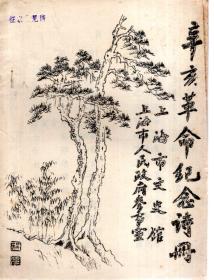 辛亥革命纪念诗册
上海市文史馆
上海市人民政府参事室